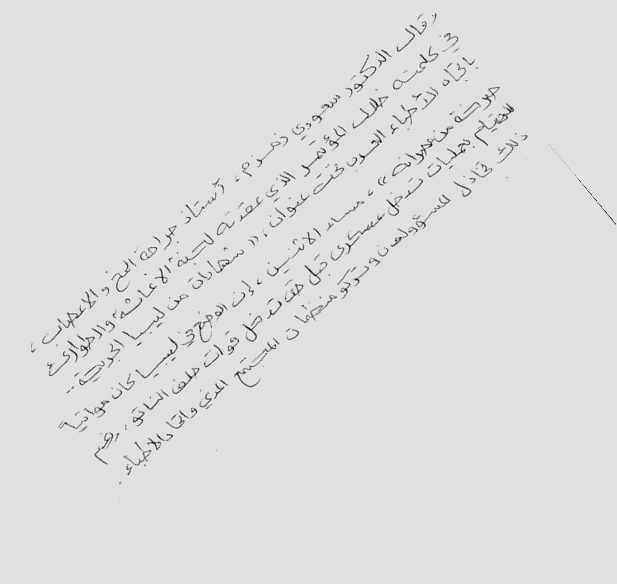 وقال الدكتور سعودي زمزم، أستاذ جراحة المخ والاعصاب،
في كلمته خلال المؤتمر الذي عقدته لجنة الاغاثة والطوارئ
باتحاد الأطباء العرب تحت عنوان، "شهادات من ليبيا الجريحة ..
صرخة من مصراته"، مساء الاثنين، إن الوضع في ليبيا كان مواتياً
للقيام بعمليات تدخل عسكرى قبل تدخل قوات حلف الناتو، رغم
ذلك تخاذل المسؤولون وتركو منظمات المجتمع المدني واتحاد الاطباء.